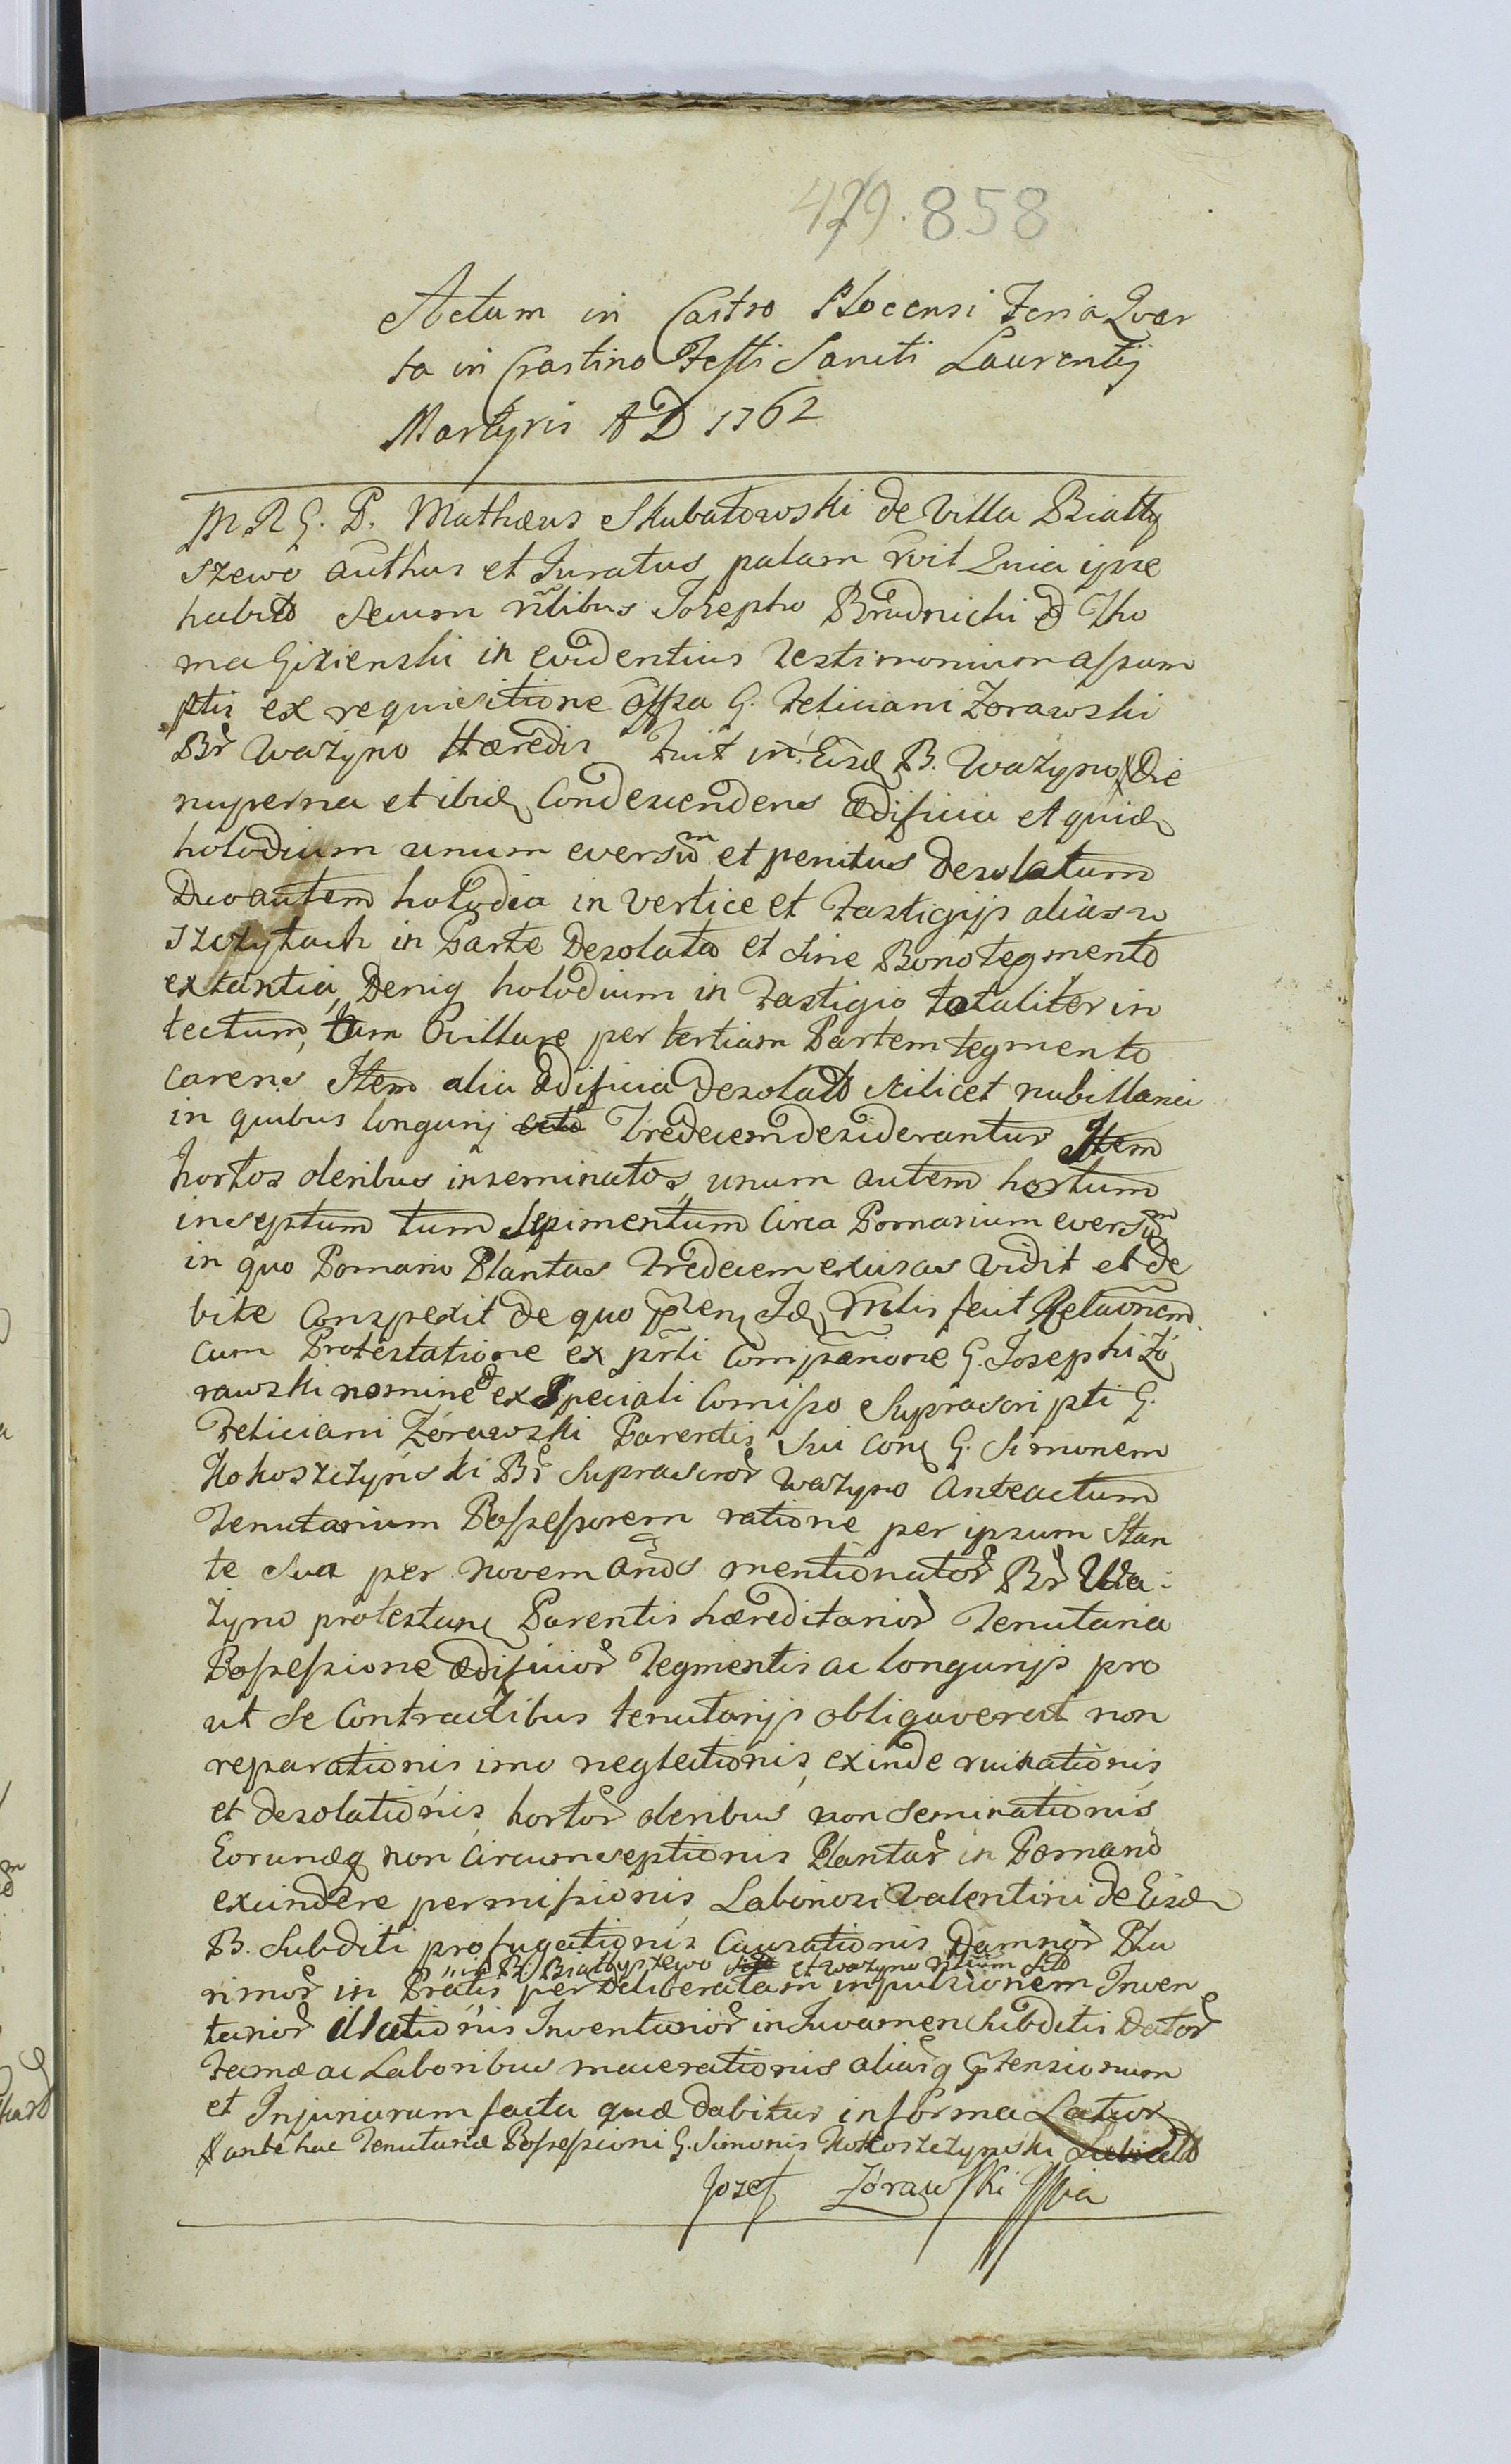 479. 858
Actum in Castro Plocensi Feria Quar
ta in Crastino Festi Sancti Laurentij
Martyris AD 1762
M R G. P. Mathæus Skubatowski de Villa Biatty
szewo authus et Juratus palam rvit Quia ipse
habito secum nñlibus Josepho Brudnicki & Tho
ma Gizienski in evidentius Testimonium assum
ptis ex requisitione offsa G. Feliciani Zorawski
Br Wazyno Hæredis Fuit in Eisd B. Wazyno Die
nuperna et ibid Condescendens ædificia et quid
holodium unum eversum et penitus desolatum
Duo autem holodia in vertice et Fastigijs alias w
szczytach in Parte Desolata et sine Bono tegmento
extantia, Deniq holodium in Fastigio totaliter in
tectum, tum Ovillare per tertiam Partem tegmento
carens Item alia ædificia Desolata scilicet nubillaria
in quibus longurij Tredecem desiderantur Item
hortos oleribus inseminatos, unum autem hortum
inseptum tum Sepimentum Circa Pomarium eversum
in quo Pomario Plantas Tredecem excisas vidit et de
bite Conspexit de quo pñem Id Mnlis fecit Relaonem
cum Protestatione ex pñti Compãnone G. Josephi Zó
rawski nomine & ex Speciali Comisso Suprascripti G.
Feliciani Zórawski Parentis Sui conq G. Simonem
Kokoszczynski Br Suprascror Wazyno Anteactum
Tenutarium Possessorem ratione per ipsum Stan
te sua per novem annos mentionator Br Wa:
zyno protestanq Parentis hæreditarior Tenutaria
Possessione ædificior Tegmentis ac longurijs pro
ut se Contractibus tenutarijs obligaverat non
reparationis imo neglectionis, exinde ruinationis
et desolationis hortor oleribus non seminationis
Eorundq non Circumseptionis Plantar in Pomario
excindere permissionis Laboriosi Valentini de Eisd
B. Subditi profugationis Causationis Damnor Plu
in B. Biattyszewo et Wazyno sito
rimor in Pratis per Deliberatam inpulsionem Inven
tarior illationis Inventarior in Juvamen Subditis Dator
Famæ ac Laboribus macerationis aliarq ptensionum
et Injuriarum facta quæ dabitur in forma Latior
ante hac Tenutariæ Possessioni G. Simonis Kokoszczynski
Jozef Zórawski